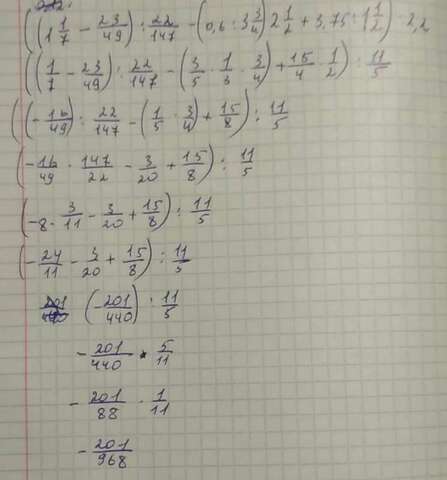 ((1 1/7 - 23/49) : 22/147 - (0,6 : 3 3/4) 2 1/2 + 3,75 : 1 1/2) : 2,2
((1/7 - 23/49) : 22/147 - (3/5 · 1/3 · 3/4) + 15/4 · 1/2) : 11/5
((-16/49) : 22/147 - (1/5 · 3/4) + 15/8) : 11/5
(-16/49 · 147/22 - 3/20 + 15/8) : 11/5
(-8 · 3/11 - 3/20 + 15/8) : 11/5
(-24/11 - 3/20 + 15/8) : 11/5
(-201/440) : 11/5
-201/440 · 5/11
-201/88 · 1/11
-201/968